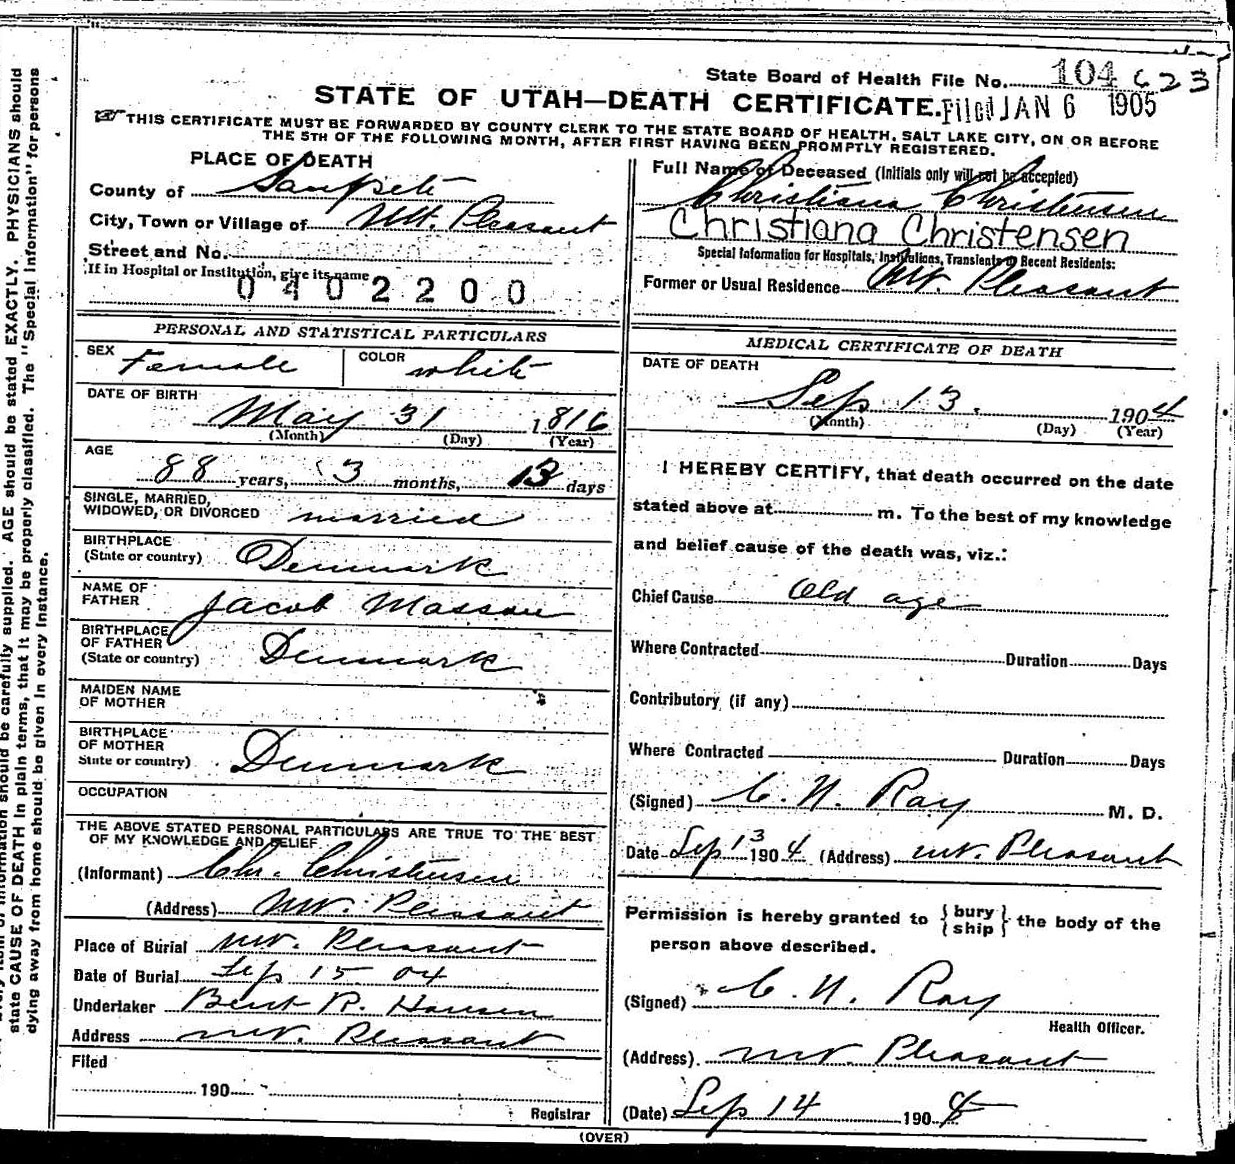 State Board of Health File No. 104 623
STATE OF UTAH—DEATH CERTIFICATE. Filed JAN 6 1905
THIS CERTIFICATE MUST BE FORWARDED BY COUNTY CLERK TO THE STATE BOARD OF HEALTH, SALT LAKE CITY, ON OR BEFORE
THE 5TH OF THE FOLLOWING MONTH, AFTER FIRST HAVING BEEN PROMPTLY REGISTERED.
PLACE OF DEATH
County of Sanpete
City, Town or Village of Mt. Pleasant
Street and No.
If in Hospital or Institution, give its name
0402200
Full Name of Deceased (Initials only will not be accepted)
Christiana Christensen
Christiana Christensen
Special Information for Hospitals, Institutions, Transients or Recent Residents:
Former or Usual Residence Mt. Pleasant
PERSONAL AND STATISTICAL PARTICULARS
SEX Female COLOR white
DATE OF BIRTH
May 31 1816
(Month) (Day) (Year)
AGE
88 years, 3 months, 13 days
SINGLE, MARRIED,
WIDOWED, OR DIVORCED married
BIRTHPLACE
(State or country) Denmark
NAME OF
FATHER Jacob Masson
BIRTHPLACE
OF FATHER
(State or country) Denmark
MAIDEN NAME
OF MOTHER
BIRTHPLACE
OF MOTHER
State or country) Denmark
OCCUPATION
THE ABOVE STATED PERSONAL PARTICULARS ARE TRUE TO THE BEST
OF MY KNOWLEDGE AND BELIEF
(Informant) Chr. Christensen
(Address) Mt. Pleasant
Place of Burial Mt. Pleasant
Date of Burial Sep 15 04
Undertaker Bent R. Hansen
Address Mt. Pleasant
Filed
190
Registrar
MEDICAL CERTIFICATE OF DEATH
DATE OF DEATH
Sep 13. 1904
(Month) (Day) (Year)
I HEREBY CERTIFY, that death occurred on the date
stated above at m. To the best of my knowledge
and belief cause of the death was, viz.:
Chief Cause Old age
Where Contracted Duration Days
Contributory (if any)
Where Contracted Duration Days
(Signed) C. N. Ray M. D.
Date Sep 13 1904 (Address) Mt. Pleasant
Permission is hereby granted to { bury
ship } the body of the
person above described.
(Signed) C. N. Ray
Health Officer.
(Address) Mt. Pleasant
(Date) Sep 14 1904
(OVER)
information should be carefully supplied. AGE should be stated EXACTLY. PHYSICIANS should
state CAUSE OF DEATH in plain terms, that it may be properly classified. The "Special Information" for persons
dying away from home should be given in every instance.